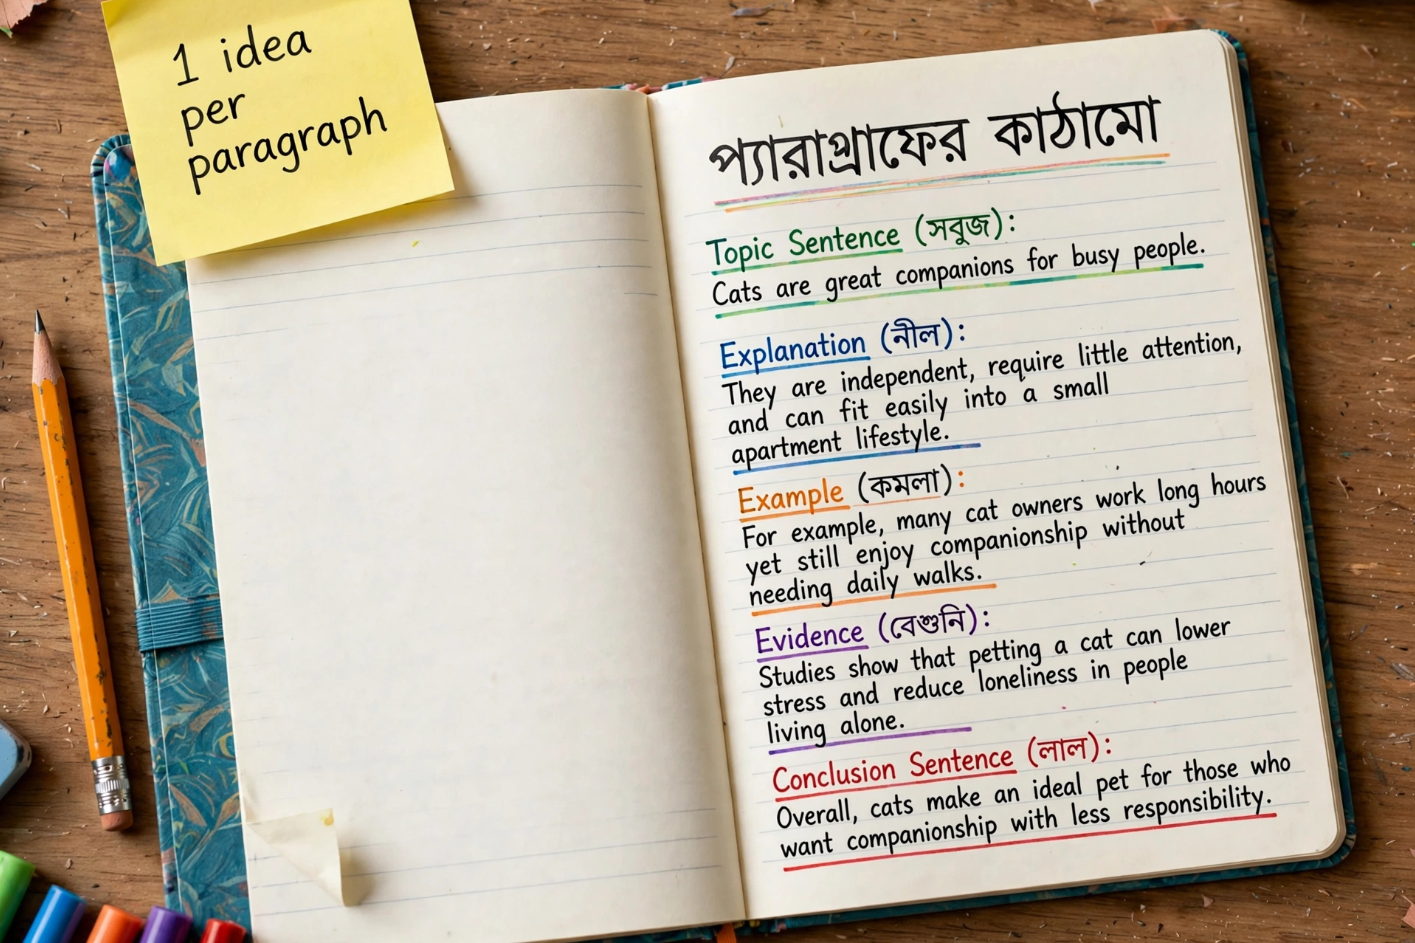 1 idea
per
paragraph
প্যারাগ্রাফের কাঠামো
Topic Sentence (সবুজ):
Cats are great companions for busy people.
Explanation (নীল):
They are independent, require little attention,
and can fit easily into a small
apartment lifestyle.
Example (কমলা):
For example, many cat owners work long hours
yet still enjoy companionship without
needing daily walks.
Evidence (বেগুনি):
Studies show that petting a cat can lower
stress and reduce loneliness in people
living alone.
Conclusion Sentence (লাল):
Overall, cats make an ideal pet for those who
want companionship with less responsibility.